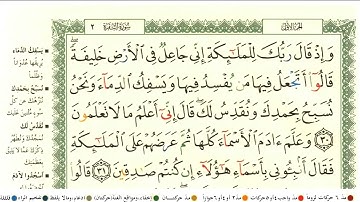 الجزء الأول
سورة البقرة ٢
وَإِذْ قَالَ رَبُّكَ لِلْمَلَٰٓئِكَةِ إِنِّى جَاعِلٌ فِى ٱلْأَرْضِ خَلِيفَةً ۖ
قَالُوٓا۟ أَتَجْعَلُ فِيهَا مَن يُفْسِدُ فِيهَا وَيَسْفِكُ ٱلدِّمَآءَ وَنَحْنُ
نُسَبِّحُ بِحَمْدِكَ وَنُقَدِّسُ لَكَ ۖ قَالَ إِنِّىٓ أَعْلَمُ مَا لَا تَعْلَمُونَ
٣٠ وَعَلَّمَ ءَادَمَ ٱلْأَسْمَآءَ كُلَّهَا ثُمَّ عَرَضَهُمْ عَلَى ٱلْمَلَٰٓئِكَةِ
فَقَالَ أَنۢبِـُٔونِى بِأَسْمَآءِ هَٰٓؤُلَآءِ إِن كُنتُمْ صَٰدِقِينَ ٣١ قَالُوا۟
يَسْفِكُ الدِّمَاءَ
نُسَبِّحُ بِحَمْدِكَ
نُقَدِّسُ لَكَ
اسْجُدُوا لِآدَمَ